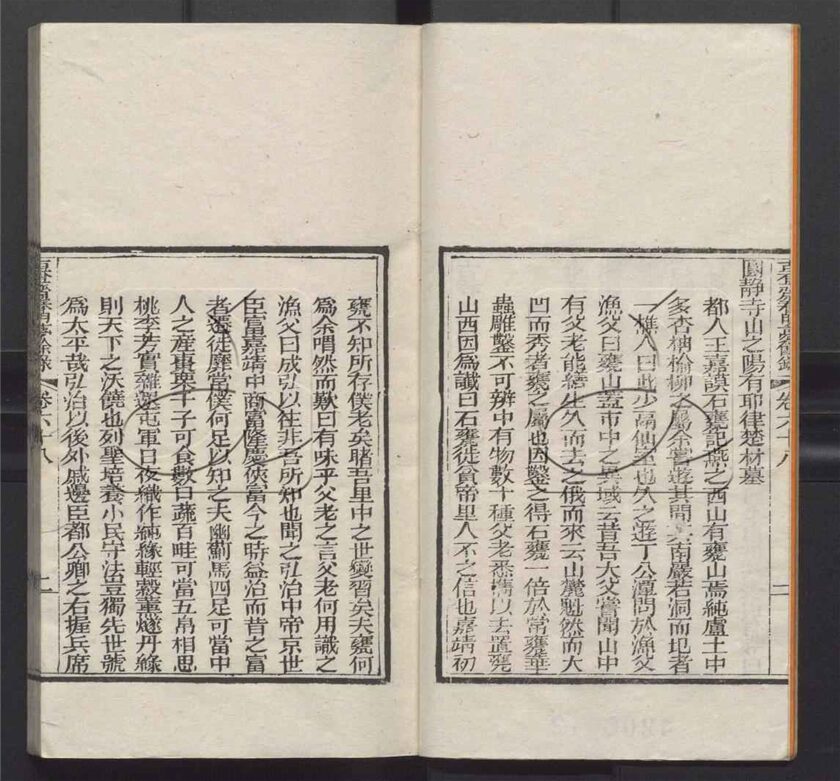 春明夢餘錄 卷六十八 二
圓静寺山之陽有耶律楚材墓
都人王嘉謨石甕記燕之西山有甕山焉純盧土中
多杏柟榆柳之屬余嘗遊其間其南巖若洞而圯者
一樵人曰此少鬲仙室也久之遊丁公潭問於漁父
漁父曰甕山蓋市中之異域云昔吾大父嘗聞山中
有父老能繪生久而去之俄而來云山麓魁然而大
凹而秀者甕之屬也因鑿之得石甕一倍於常甕華
蟲雕鏤不可辨中有物數十種父老悉攜以去置甕
山西因爲讖曰石甕徙貧帝里人不之信也嘉靖初
甕不知所存僕老矣睹吾里中之世變習矣夫甕何
爲余喟然而歎曰有味乎父老之言父老何用識之
漁父曰成弘以往非吾所知也聞之弘治中帝京世
臣富嘉靖中商富隆慶俠富今之時益治而昔之富
者遷徙靡當僕何足以知之夫幽薊馬四足可當中
人之產棗栗千子可食數口蔬百畦可當五帛相思
桃李芳實雜遝屯軍日夜織作純緣輕縠薰燧丹綠
則天下之沃饒也列聖培養小民守法豈獨先世號
爲太平哉弘治以後外戚邊臣都公卿之右握兵席
卷六十八 二